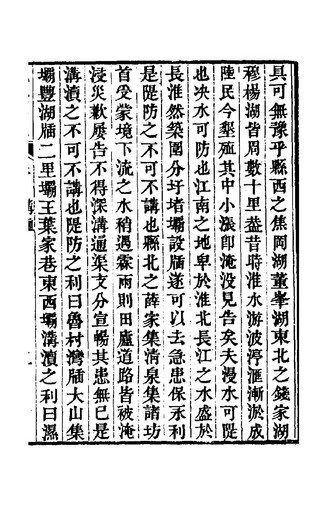 具可無豫乎縣西之焦岡湖董峯湖東北之錢家湖
穆楊湖皆周數十里蓋昔時淮水游波渟滙漸淤成
陸民今墾殖其中小漲卽淹沒見告矣夫漫水可隄
也决水可防也江南之地卑於淮北長江之水盛於
長淮然築圍分圩堵壩設牐遂可以去急患保永利
是隄防之不可不講也縣北之薛家集清泉集諸坊
首受蒙境下流之水稍遇霖雨則田廬道路皆被淹
浸災歉屢告不得深溝通渠支分宣暢其患無已是
溝瀆之不可不講也隄防之利曰魯村灣牐大山集
壩豐湖牐二里壩王葉家巷東西壩溝瀆之利曰濕